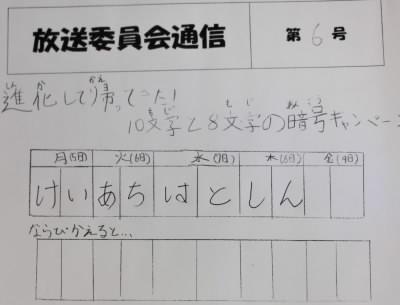 放送委員会通信
第6号
進化して帰ってった!
10文字と8文字の暗号キャンペーン
月(5日) 火(6日) 水(7日) 木(8日) 金(9日)
けいあちはとしん
ならびかえると…